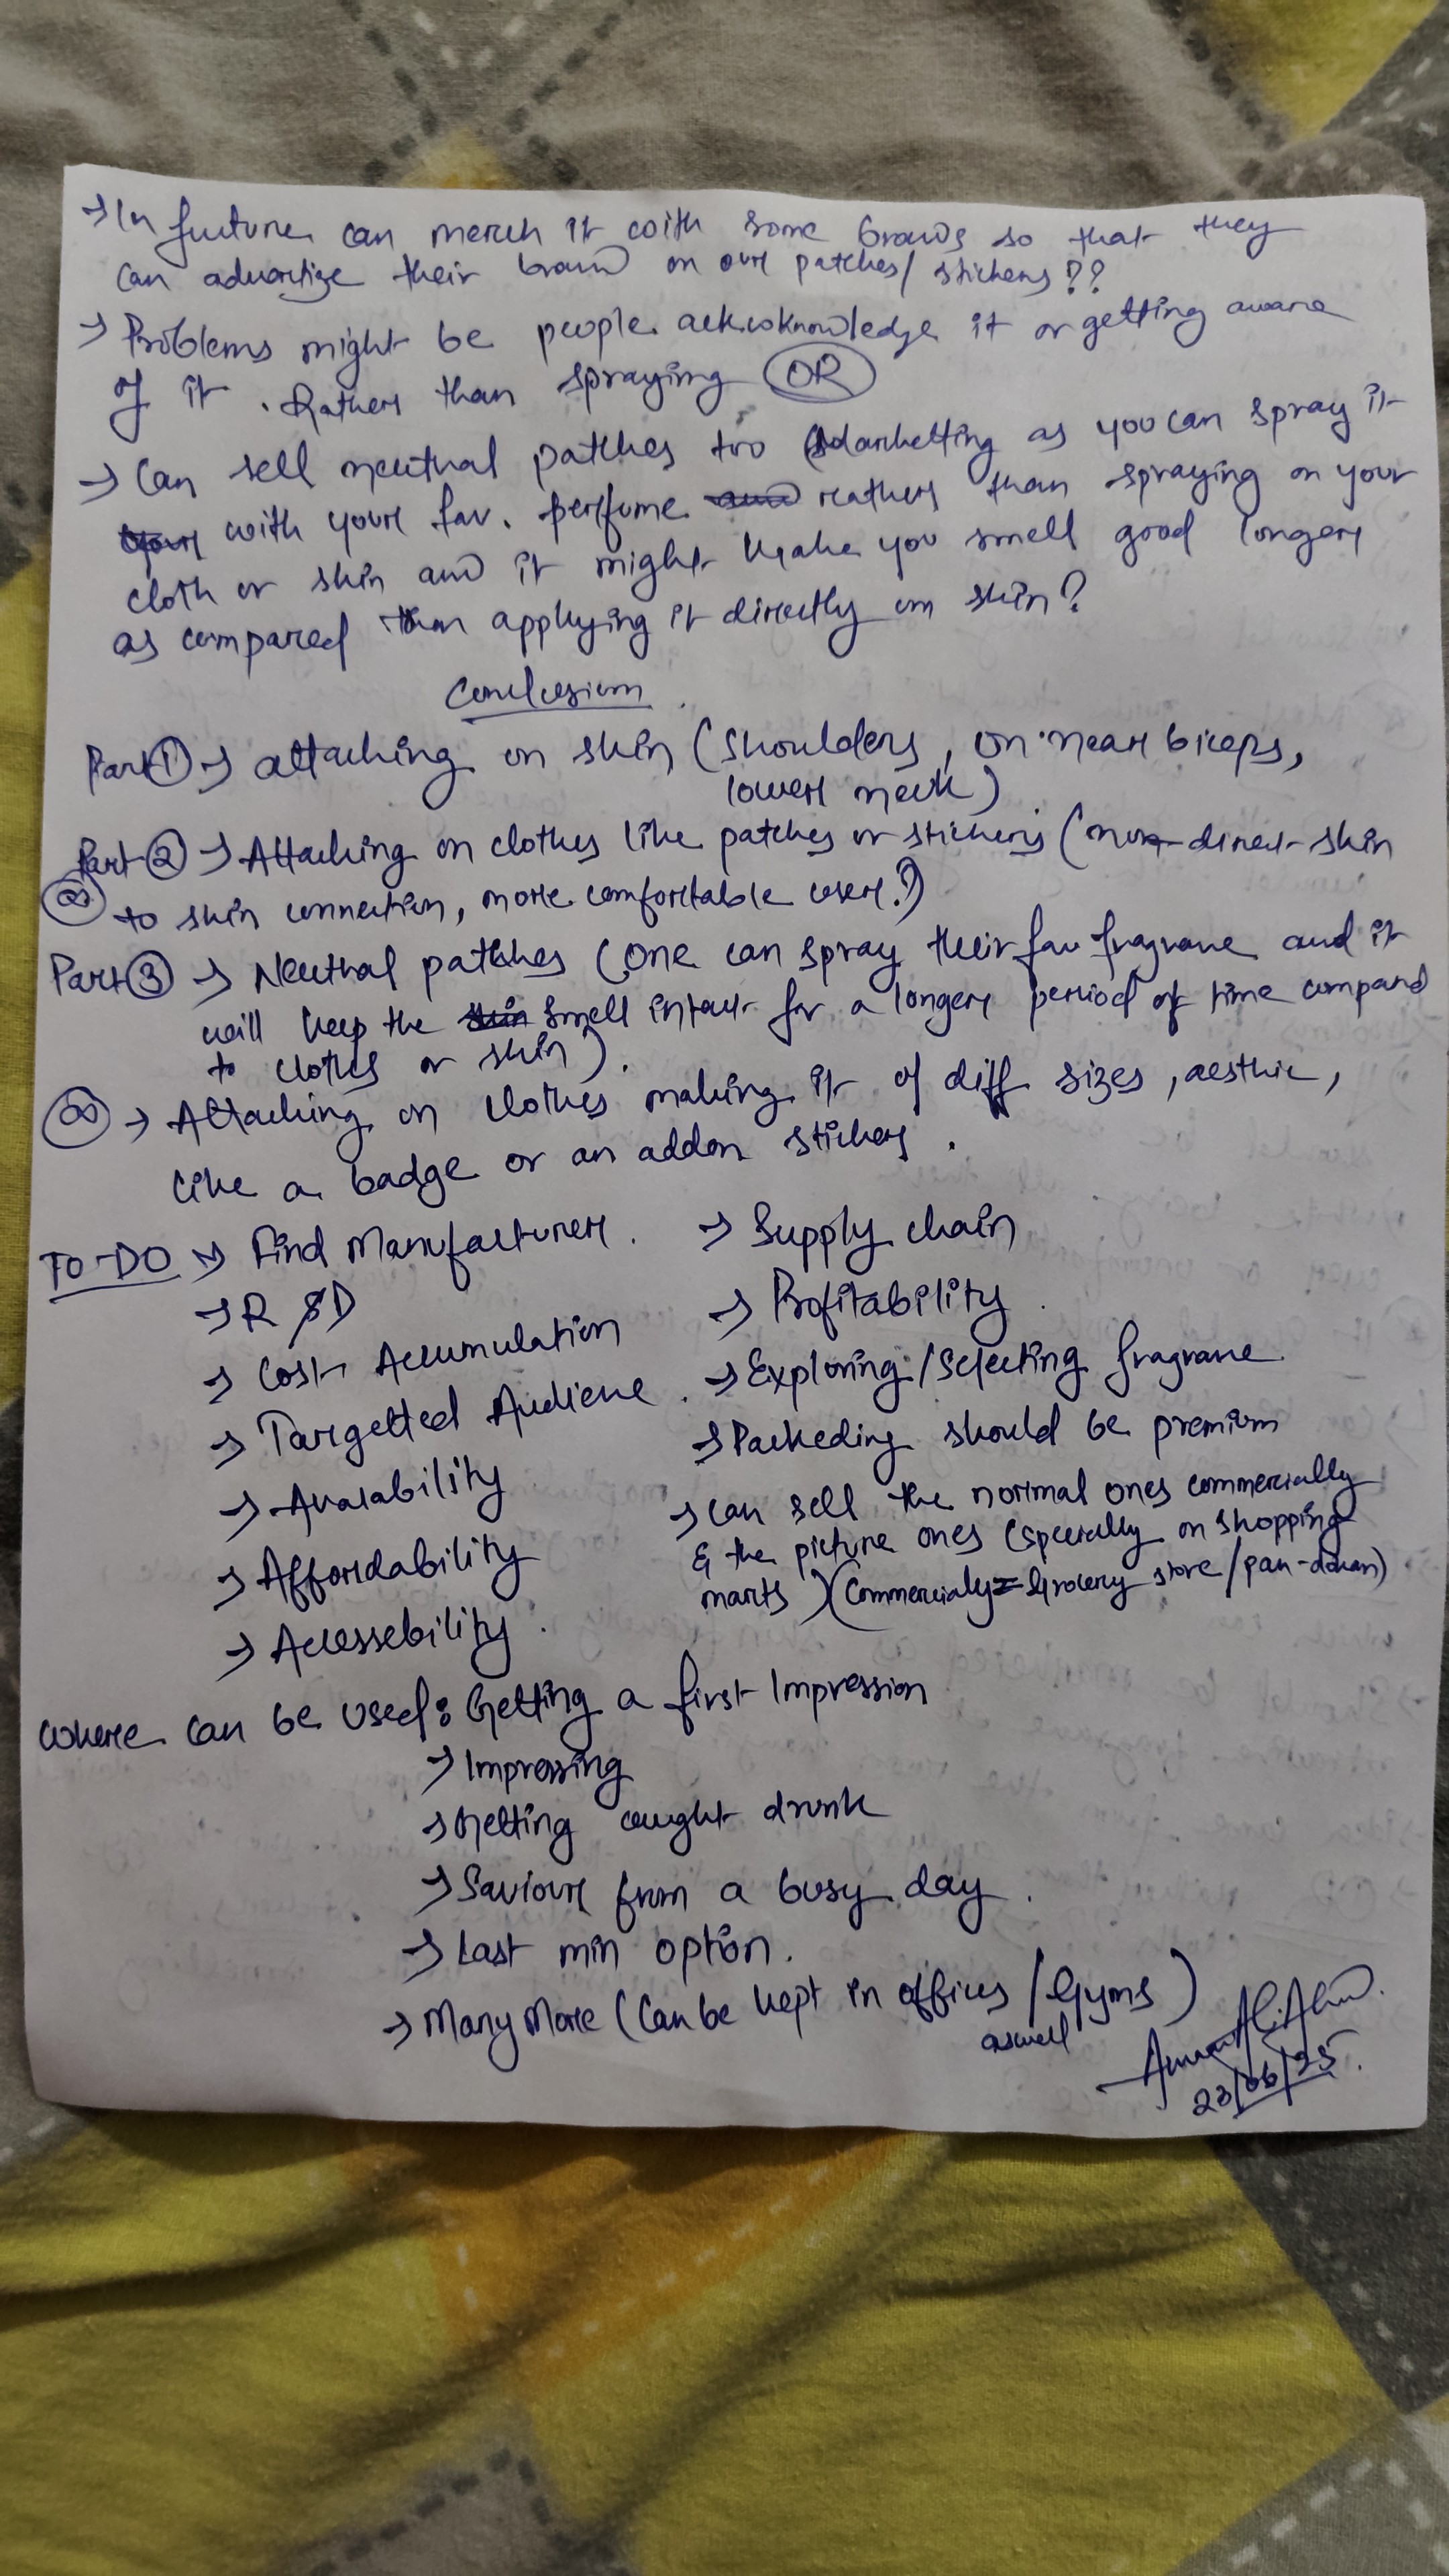 → In future can merch it with some brands so that they
can advertize their brand on our patches/ stickers??
→ Problems might be people acknowledge it or getting aware
of it. Rather than spraying OR
→ Can sell neutral patches too Marketting as you can spray it
with your fav. perfume rather than spraying on your
cloth or skin and it might make you smell good longer
as compared than applying it directly on skin?
Conclusion
Part ① → attaching on skin (shoulders, on near biceps,
lower neck)
Part ② → Attaching on clothes like patches or stickers (non-direct skin
to skin connection, more comfortable user?)
Part ③ → Neutral patches (One can spray their fav fragrance and it
will keep the smell intact for a longer period of time compared
to clothes or skin).
∞ → Attaching on clothes making it of diff sizes, aesthic,
like a badge or an addon stickers.
TO-DO → Find Manufacturer.
→ R & D
→ Cost Accumulation
→ Targetted Audience.
→ Avalability
→ Affordability
→ Accessebility.
→ Supply chain
→ Profitability
→ Exploring/Selecting fragrance
→ Packeding should be premium
→ Can sell the normal ones commercially
& the picture ones (specially on shopping
marts) (Commercialy = Grocery store / pan-dokan)
Where can be used: Getting a first Impression
→ Impressing
→ Getting caught drunk
→ Saviour from a busy day.
→ Last min option.
→ Many More (Can be kept in offices / Gyms)
aswell
23/06/25.